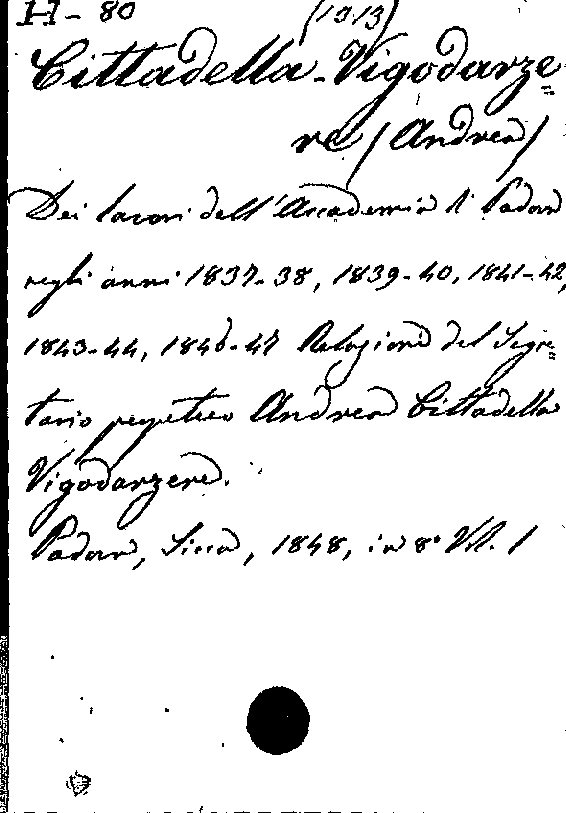 H - 80 (1013)
Cittadella-Vigodarze=
re (Andrea)
Dei lavori dell'Accademia di Padova
negli anni 1837-38, 1839-40, 1841-42,
1843-44, 1846-47 Relazioni del Segre=
tario perpetuo Andrea Cittadella
Vigodarzere.
Padova, Sicca, 1848, in 8° Vol. 1